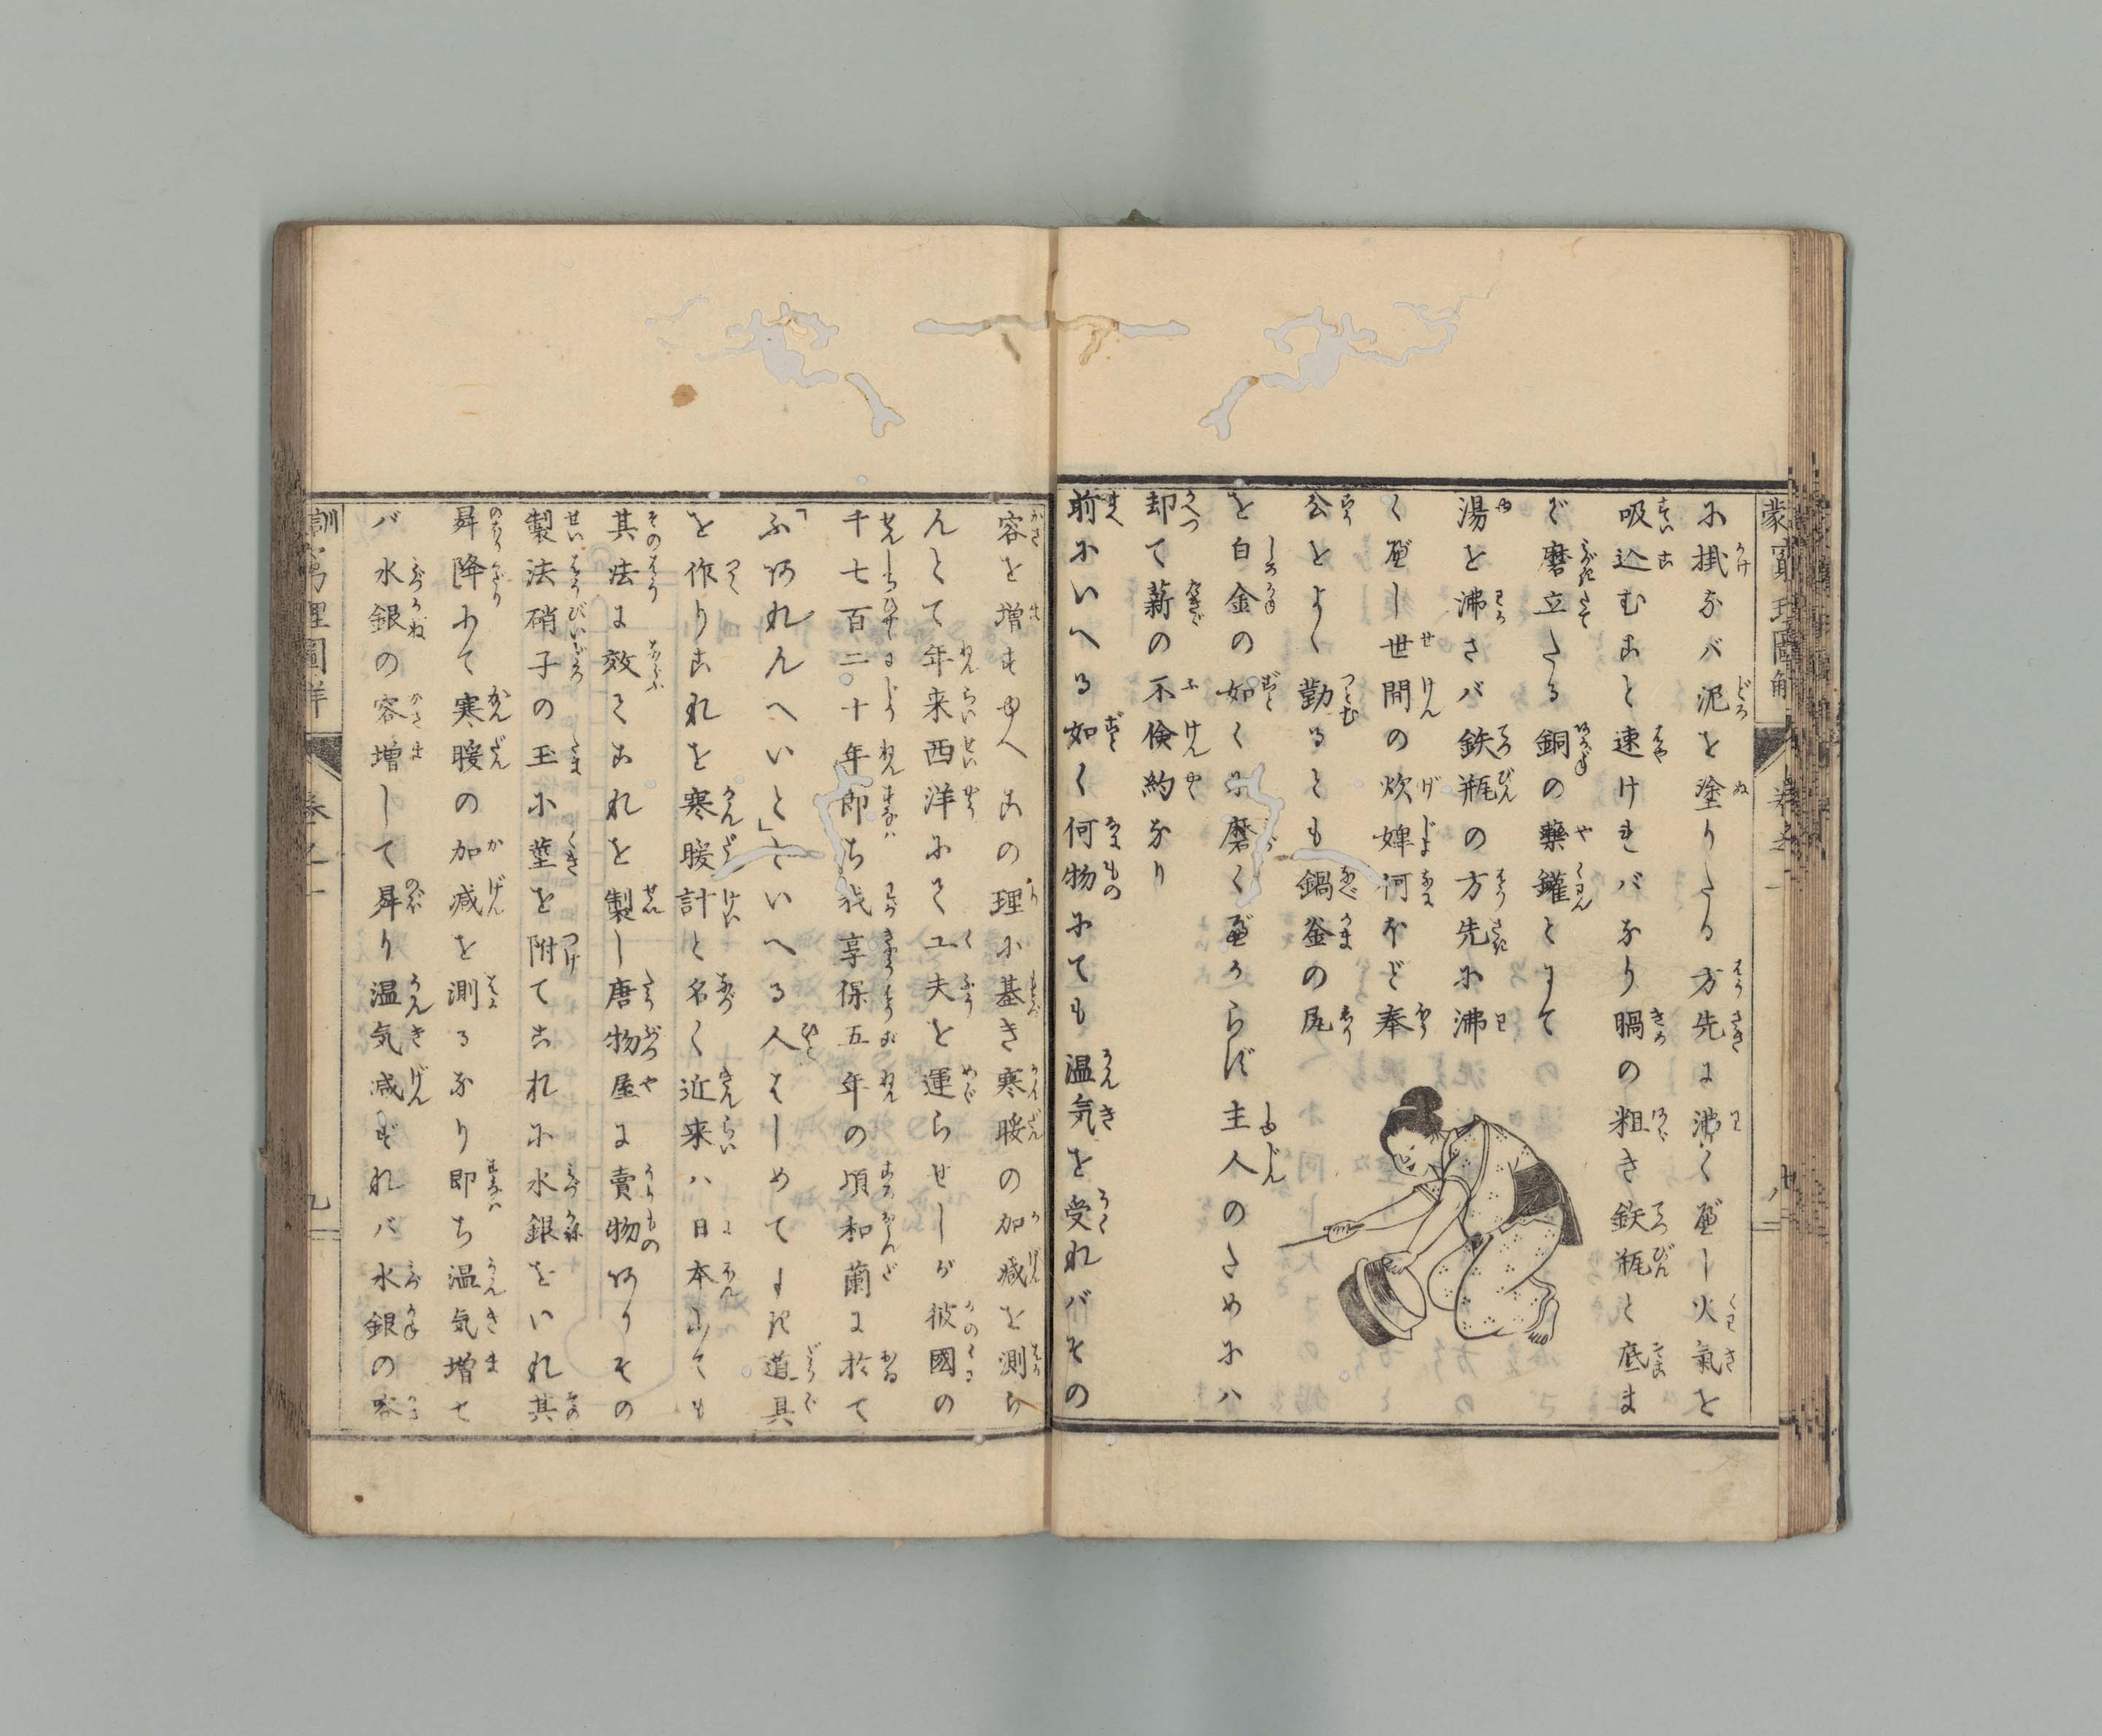 に掛なバ泥を塗りたる方先に沸く庭し火氣を
吸込むこと速けれバなり鍋の粗き鉄瓶と底ま
で磨立たる銅の藥鑵とにて
湯を沸さバ鉄瓶の方先に沸
く庭し世間の炊婢何ほど奉
公をよく勤るとも鍋釜の尻
を白金の如くに磨く庭からず主人のためにハ
却て薪の不倹約なり
前にいへる如く何物にても温気を受れバその
容を増すゆへこの理に基き寒暖の加减を測ら
んとて年来西洋にて工夫を運らせしが彼國の
千七百二十年即ち我享保五年の頃和蘭に於て
「ふあれんへいと」といへる人はしめてよき道具
を作りこれを寒暖計と名く近来ハ日本にても
其法に效てこれを製し唐物屋に賣物ありその
製法硝子の玉に莖を附てこれに水銀をいれ其
昇降にて寒暖の加减を測るなり即ち温気増せ
バ水銀の容増して昇り温気减ずれバ水銀の容
訓蒙窮理圖解 巻之一 九